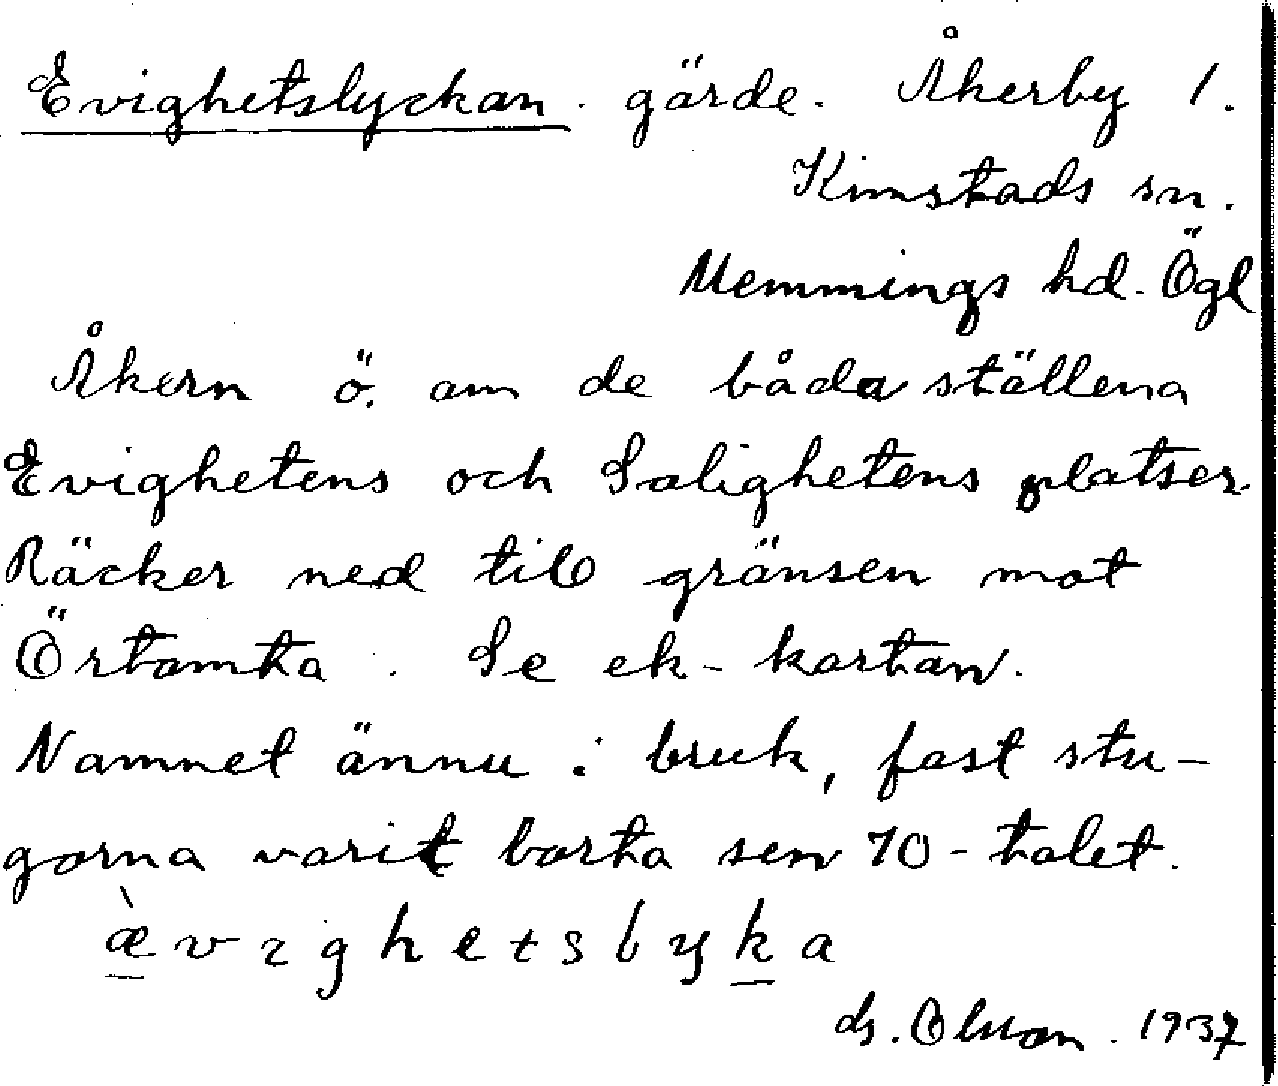 Evighetslyckan. gärde. Åkerby 1.
Kimstads sn.
Memmings hd. Ögl
Åkern ö. om de båda ställena
Evighetens och Salighetens platser.
Räcker ned till gränsen mot
Örtomta. Se ek-kartan.
Namnet ännu i bruk, fast stu-
gorna varit borta sen 70-talet.
æ̀vighetslyka
Olsson. 1937